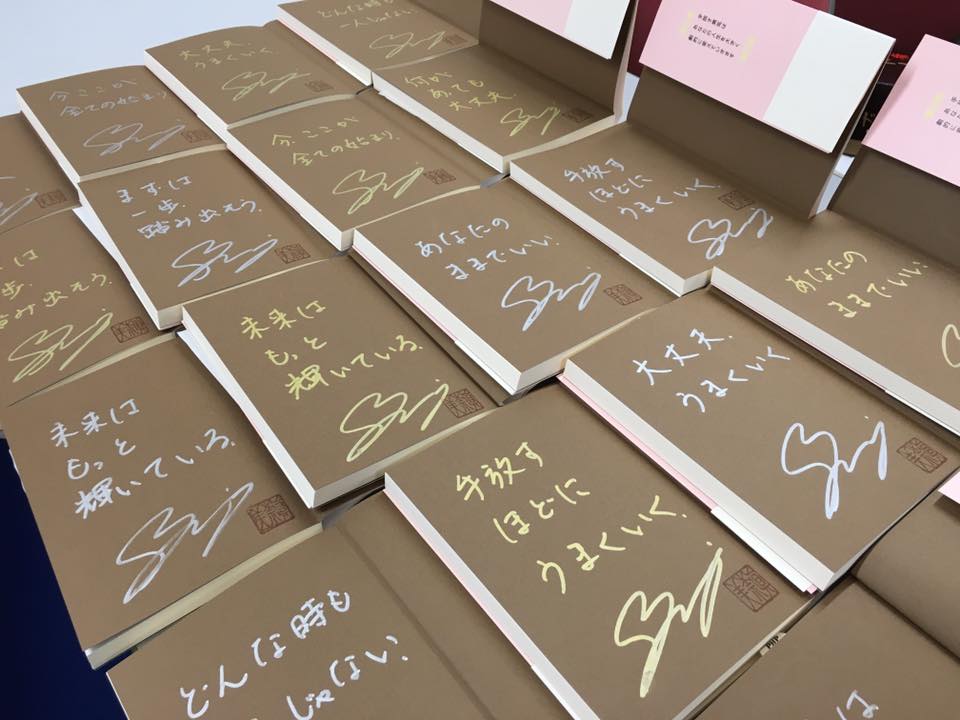 どんな時も
一人じゃない
大丈夫.
うまくいく.
今ここが
全ての始まり
何が
あっても
大丈夫
今ここが
全ての始まり.
まずは
一歩.
踏み出そう.
手放す
ほどに
うまくいく.
あなたの
ままでいい.
あなたの
ままでいい.
は
歩.
踏み出そう.
未来は
もっと
輝いている.
大丈夫.
うまくいく
未来は
もっと
輝いている.
手放す
ほどに
うまくいく.
どんな時も
じゃない.
は